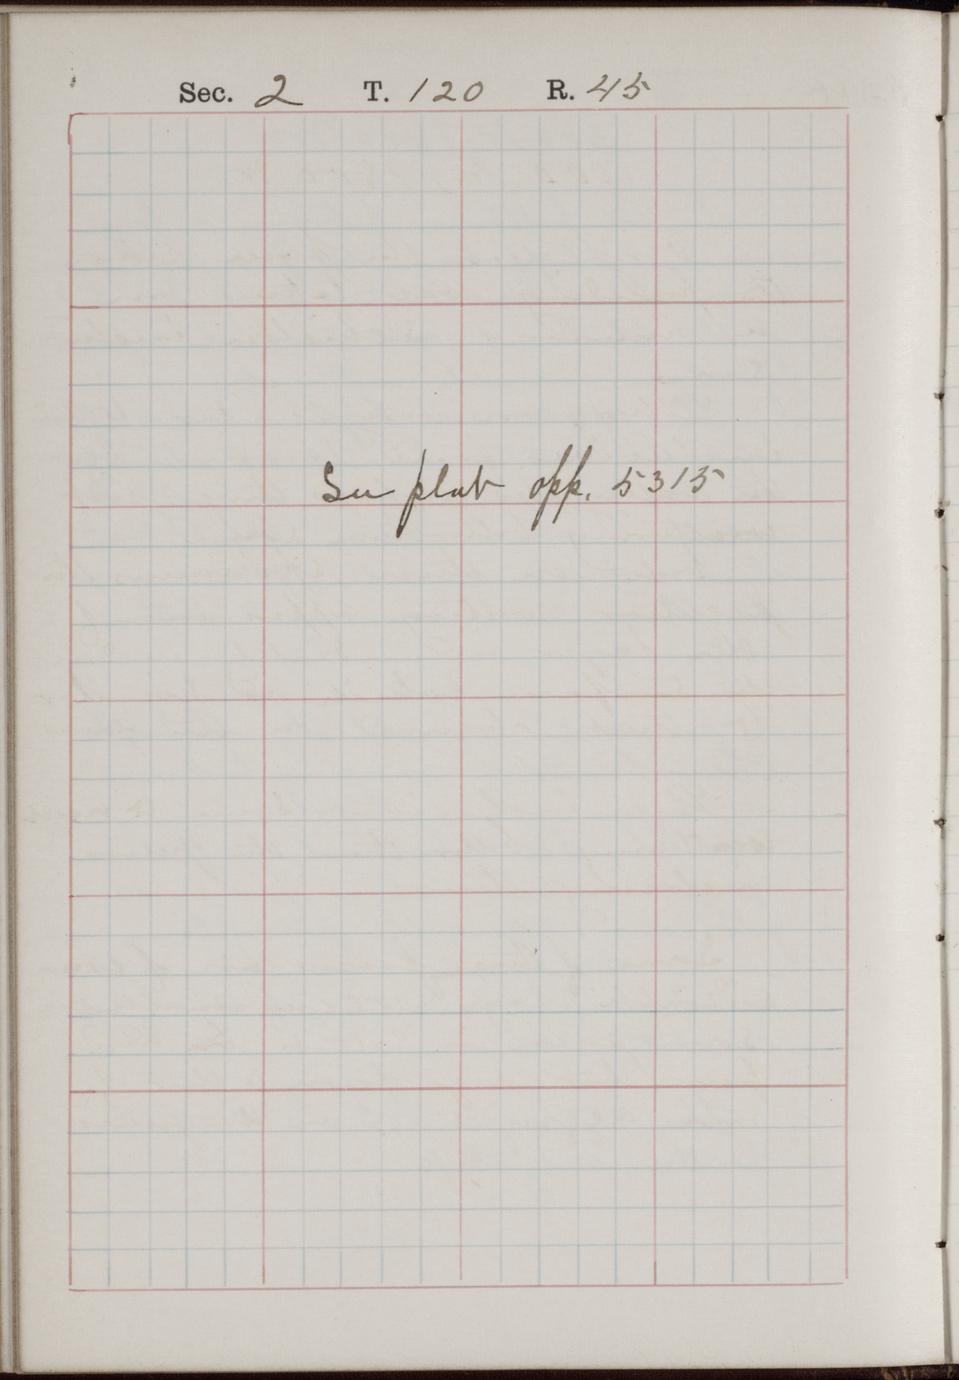 Sec. 2 T. 120 R. 45
See plat opp. 5315